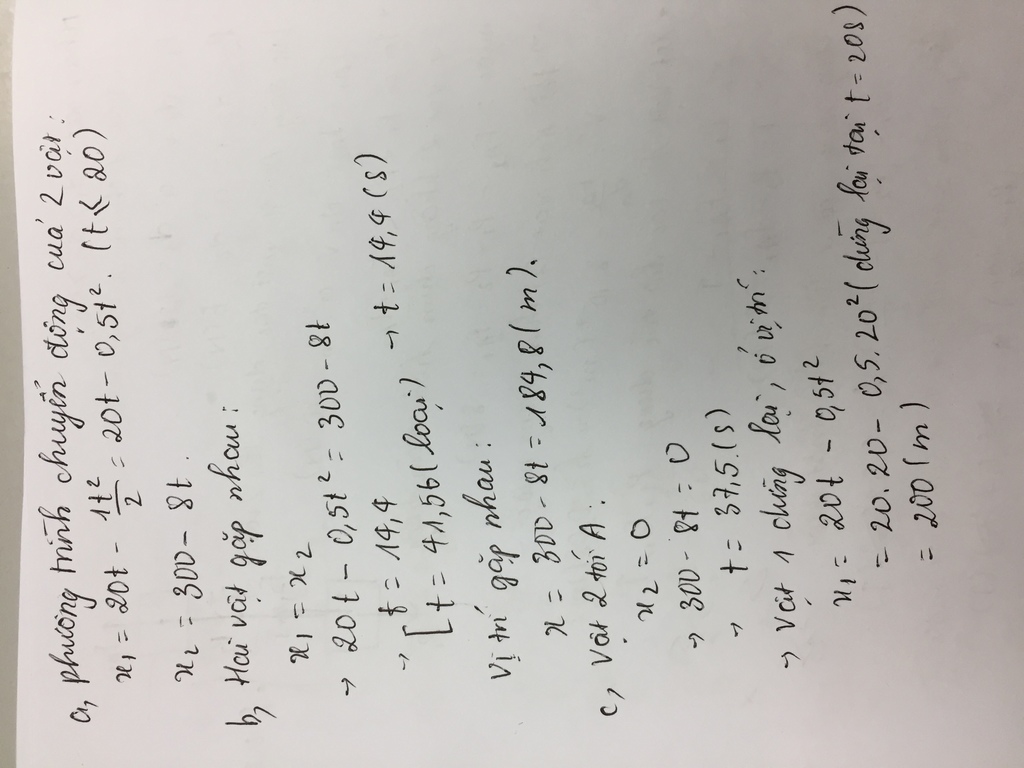 a, phương trình chuyển động của 2 vật:
x₁ = 20t - 1t²/2 = 20t - 0,5t². (t < 20)
x₂ = 300 - 8t.
b, Hai vật gặp nhau:
x₁ = x₂
→ 20t - 0,5t² = 300 - 8t
→ [ t = 14,4 → t = 14,4 (s)
t = 41,56 (loại)
Vị trí gặp nhau:
x = 300 - 8t = 184,8 (m).
c, Vật 2 tới A:
x₂ = 0
→ 300 - 8t = 0
→ t = 37,5 (s)
→ Vật 1 dừng lại, ở vị trí:
x₁ = 20t - 0,5t²
= 20.20 - 0,5.20² (dừng lại tại t = 20s)
= 200 (m)